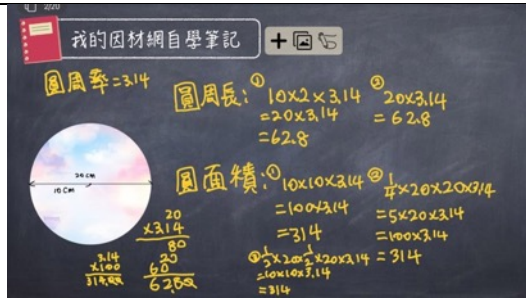 2/20
我的因材網自學筆記
圓周率=3.14
圓周長:① 10×2×3.14
=20×3.14
=62.8
② 20×3.14
=62.8
20cm
10cm
圓面積:① 10×10×3.14
=100×3.14
=314
② 1/4×20×20×3.14
=5×20×3.14
=100×3.14
=314
③ 1/2×20×1/2×20×3.14
=10×10×3.14
=314
20
×3.14
80
20
60
62.80
3.14
×100
314.00